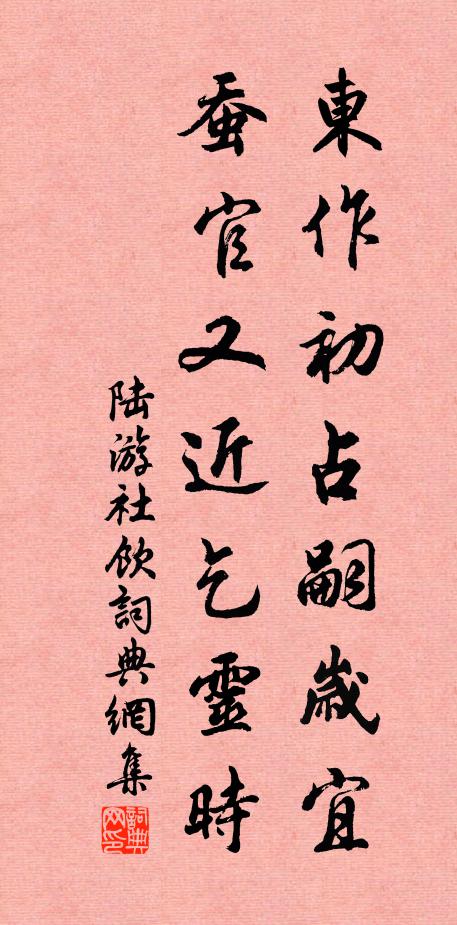 東作初占嗣歲宜
蚕官又近乞靈時
陆游社飲詞典網集
詞典
网印